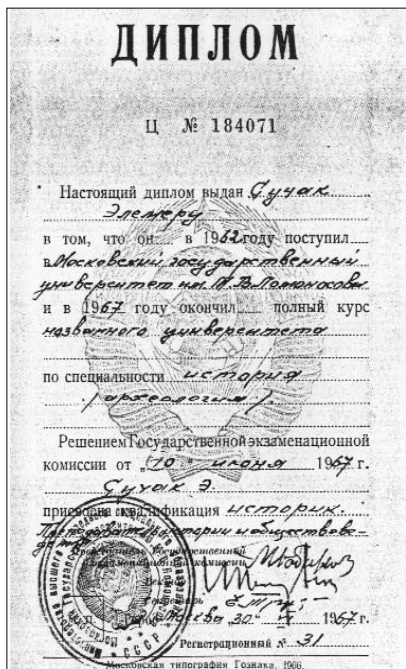 ДИПЛОМ
Ц № 184071
Настоящий диплом выдан Сучак
Элемеру
в том, что он в 1962 году поступил
в Московский государственный
университет им. М.В. Ломоносова
и в 1967 году окончил полный курс
названного университета
по специальности история
(археология).
Решением Государственной экзаменационной
комиссии от „10“ июня 1967 г.
Сучак Э.
присвоена квалификация историк.
Преподаватель истории и обществове-
Председатель Государственной
экзаменационной комиссии
Ректор
Секретарь
Город Москва 30 1967 г.
Регистрационный № 31
Московская типография Гознака. 1966.
СССР